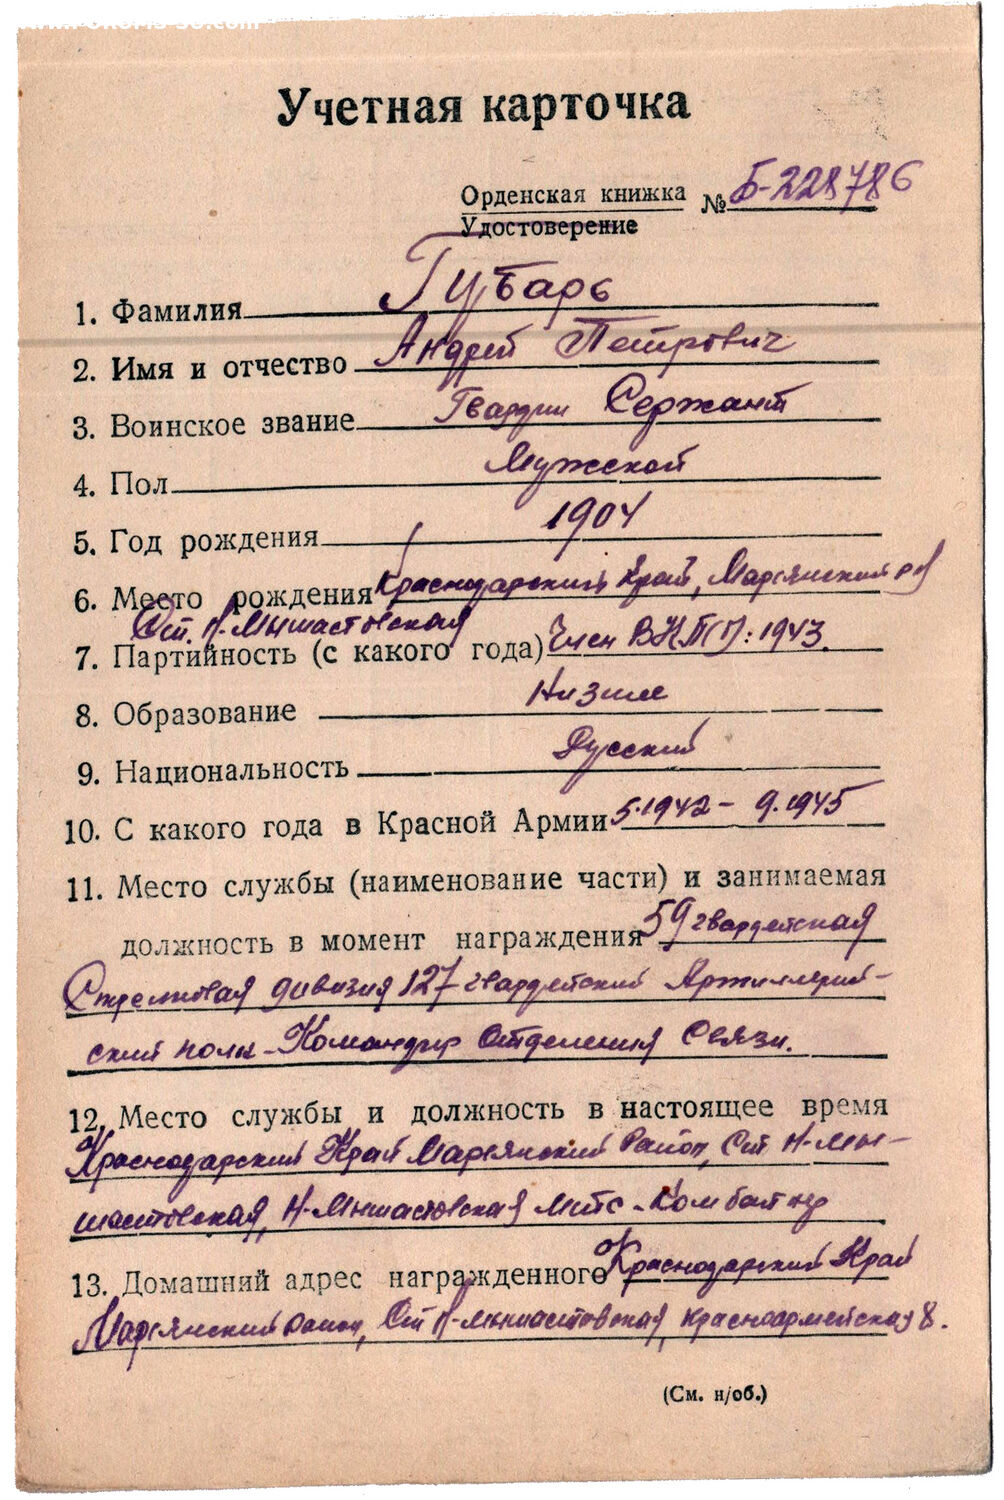 Учетная карточка
Орденская книжка
Удостоверение
№ Б-228786
1. Фамилия Губарь
2. Имя и отчество Андрей Петрович
3. Воинское звание Гвардии Сержант
4. Пол Мужской
5. Год рождения 1904
6. Место рождения Краснодарский Край, Марьянский р-н
Ст. Н-Мышастовская
7. Партийность (с какого года) Член ВКП(б): 1943.
8. Образование Низшее
9. Национальность Русский
10. С какого года в Красной Армии 5.1942 - 9.1945
11. Место службы (наименование части) и занимаемая
должность в момент награждения 59 гвардейская
Стрелковая дивизия 127 гвардейский Артиллерий-
ский полк - Командир Отделения Связи.
12. Место службы и должность в настоящее время
Краснодарский Край Марьянский Район, Ст. Н-Мы-
шастовская, Н-Мышастовская МТС - Комбайнер
13. Домашний адрес награжденного Краснодарский Край
Марьянский район, Ст Н-Мышастовская, Красноармейская 8.
(См. н/об.)